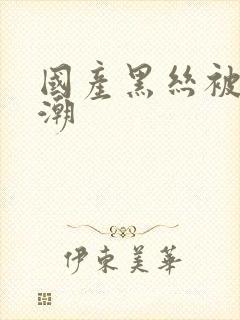 國產黑絲被
潮
伊東美華